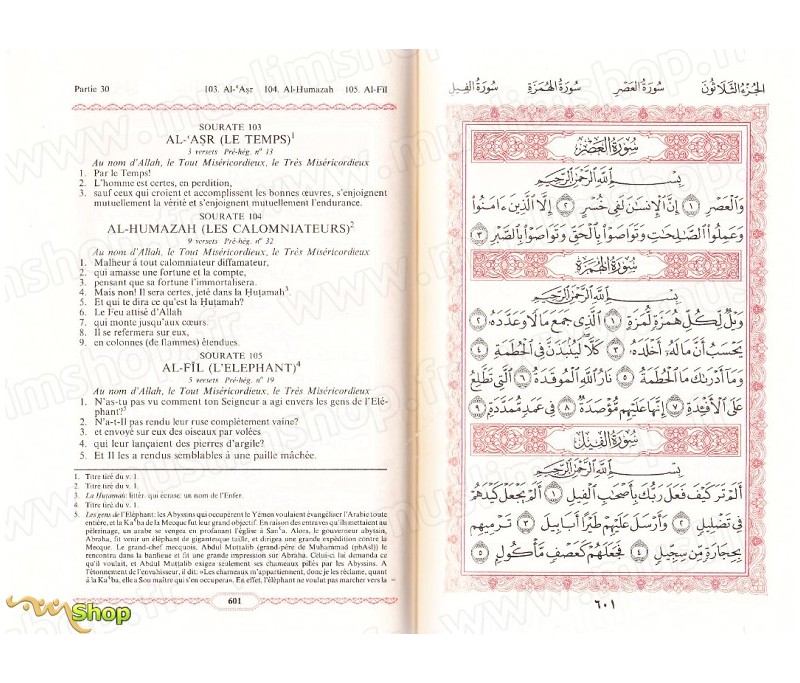 Partie 30 103. Al-ʿAṣr 104. Al-Humazah 105. Al-Fîl
SOURATE 103
AL-ʿAṢR (LE TEMPS)¹
3 versets Pré-hég. nº 13
Au nom d'Allah, le Tout Miséricordieux, le Très Miséricordieux
1. Par le Temps!
2. L'homme est certes, en perdition,
3. sauf ceux qui croient et accomplissent les bonnes œuvres, s'enjoignent
mutuellement la vérité et s'enjoignent mutuellement l'endurance.
SOURATE 104
AL-HUMAZAH (LES CALOMNIATEURS)²
9 versets Pré-hég. nº 32
Au nom d'Allah, le Tout Miséricordieux, le Très Miséricordieux
1. Malheur à tout calomniateur diffamateur,
2. qui amasse une fortune et la compte,
3. pensant que sa fortune l'immortalisera.
4. Mais non! Il sera certes, jeté dans la Ḥuṭamah³.
5. Et qui te dira ce qu'est la Ḥuṭamah?
6. Le Feu attisé d'Allah
7. qui monte jusqu'aux cœurs.
8. Il se refermera sur eux,
9. en colonnes (de flammes) étendues.
SOURATE 105
AL-FÎL (L'ELEPHANT)⁴
5 versets Pré-hég. nº 19
Au nom d'Allah, le Tout Miséricordieux, le Très Miséricordieux
1. N'as-tu pas vu comment ton Seigneur a agi envers les gens de l'Elé-
phant?⁵
2. N'a-t-Il pas rendu leur ruse complètement vaine?
3. et envoyé sur eux des oiseaux par volées
4. qui leur lançaient des pierres d'argile?
5. Et Il les a rendus semblables à une paille mâchée.
1. Titre tiré du v. 1.
2. Titre tiré du v. 1.
3. La Ḥuṭamah: littér. qui écrase: un nom de l'Enfer.
4. Titre tiré du v. 1.
5. Les gens de l'Eléphant: les Abyssins qui occupèrent le Yémen voulaient évangéliser l'Arabie toute
entière, et la Kaʿba de la Mecque fut leur grand objectif. En raison des entraves qu'ils mettaient au
pèlerinage, un arabe se vengea en profanant l'église à Sanʿa. Devenu furieux, le gouverneur abyssin,
Abraha, fit venir un éléphant de gigantesque taille, et dirigea une grande expédition contre la
Mecque. Le grand-chef mecquois, Abdul Muṭṭalib (grand-père de Muḥammad (pbAsl)) le
rencontra dans la banlieue et fit une grande impression sur Abraha. Celui-ci lui demanda ce
qu'il voulait, et Abdul Muṭṭalib exigea seulement ses chameaux pillés par les Abyssins. A
l'étonnement de l'envahisseur, il dit: «Les chameaux m'appartiennent, donc je les réclame, quant
à la Kaʿba, elle a Son maître qui s'en occupera». En effet, l'éléphant ne voulut pas marcher vers la
601
الجزء الثلاثون سورة العصر سورة الهمزة سورة الفيل
سورة العصر
بِسْمِ اللَّهِ الرَّحْمَٰنِ الرَّحِيمِ
وَالْعَصْرِ ١ إِنَّ الْإِنسَانَ لَفِي خُسْرٍ ٢ إِلَّا الَّذِينَ ءَامَنُوا
وَعَمِلُوا الصَّالِحَاتِ وَتَوَاصَوْا بِالْحَقِّ وَتَوَاصَوْا بِالصَّبْرِ ٣
سورة الهمزة
بِسْمِ اللَّهِ الرَّحْمَٰنِ الرَّحِيمِ
وَيْلٌ لِّكُلِّ هُمَزَةٍ لُّمَزَةٍ ١ الَّذِي جَمَعَ مَالًا وَعَدَّدَهُ ٢
يَحْسَبُ أَنَّ مَالَهُ أَخْلَدَهُ ٣ كَلَّا لَيُنبَذَنَّ فِي الْحُطَمَةِ ٤
وَمَا أَدْرَىٰكَ مَا الْحُطَمَةُ ٥ نَارُ اللَّهِ الْمُوقَدَةُ ٦ الَّتِي تَطَّلِعُ
عَلَى الْأَفْئِدَةِ ٧ إِنَّهَا عَلَيْهِم مُّؤْصَدَةٌ ٨ فِي عَمَدٍ مُّمَدَّدَةٍ ٩
سورة الفيل
بِسْمِ اللَّهِ الرَّحْمَٰنِ الرَّحِيمِ
أَلَمْ تَرَ كَيْفَ فَعَلَ رَبُّكَ بِأَصْحَابِ الْفِيلِ ١ أَلَمْ يَجْعَلْ كَيْدَهُمْ
فِي تَضْلِيلٍ ٢ وَأَرْسَلَ عَلَيْهِمْ طَيْرًا أَبَابِيلَ ٣ تَرْمِيهِم
بِحِجَارَةٍ مِّن سِجِّيلٍ ٤ فَجَعَلَهُمْ كَعَصْفٍ مَّأْكُولٍ ٥
٦٠١
Shop
www.muslimshop.fr